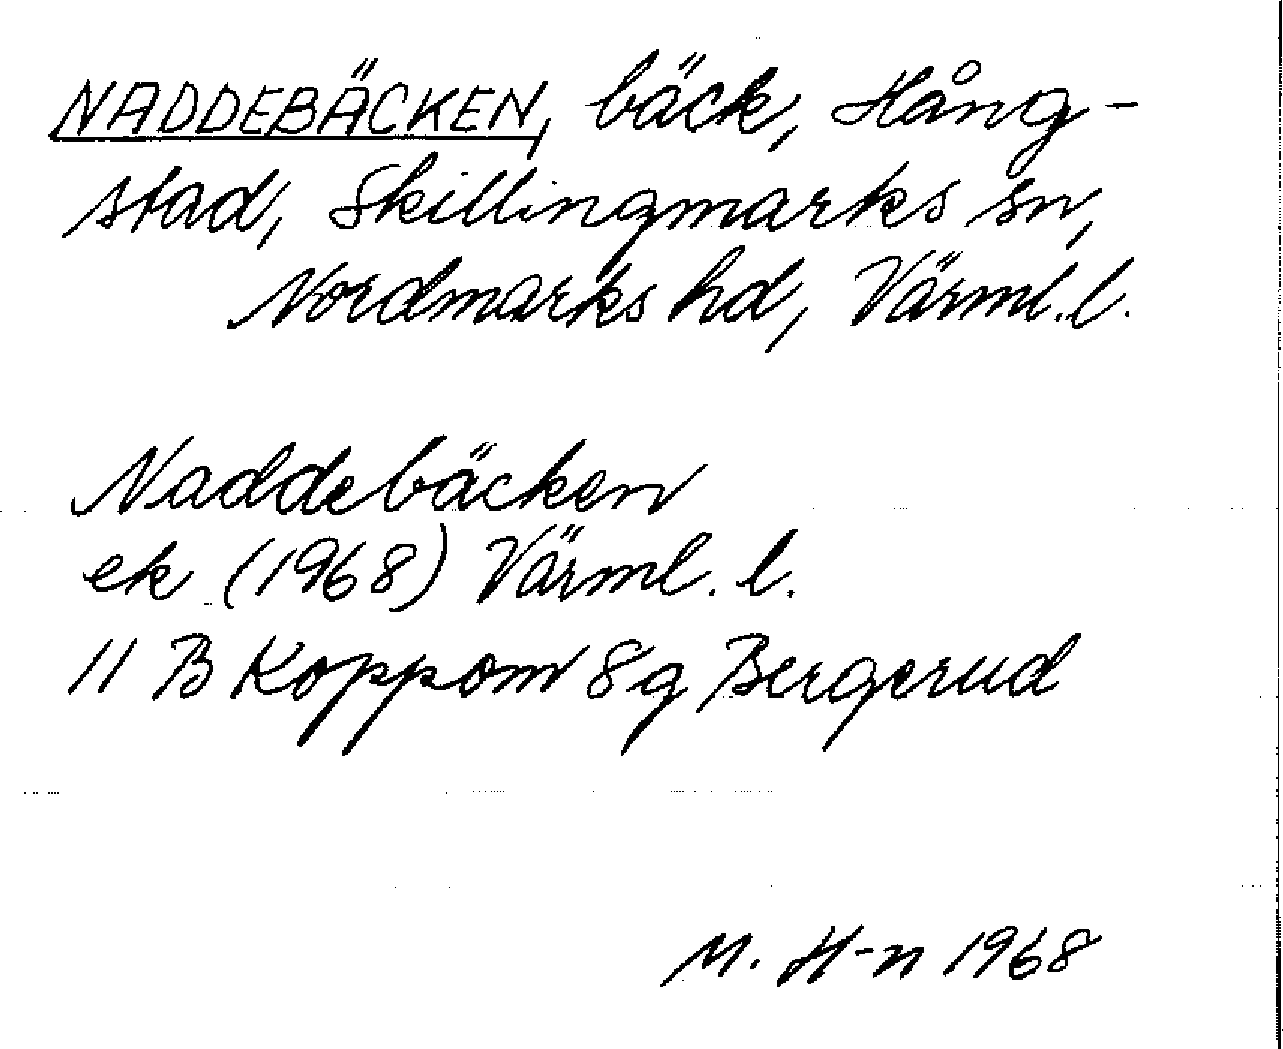 NADDEBÄCKEN, bäck, Hång-
stad, Skillingmarks sn,
Nordmarks hd, Värml. l.
Naddebäcken
ek (1968) Värml. l.
11 B Koppom 8g Bergerud
M. H-n 1968